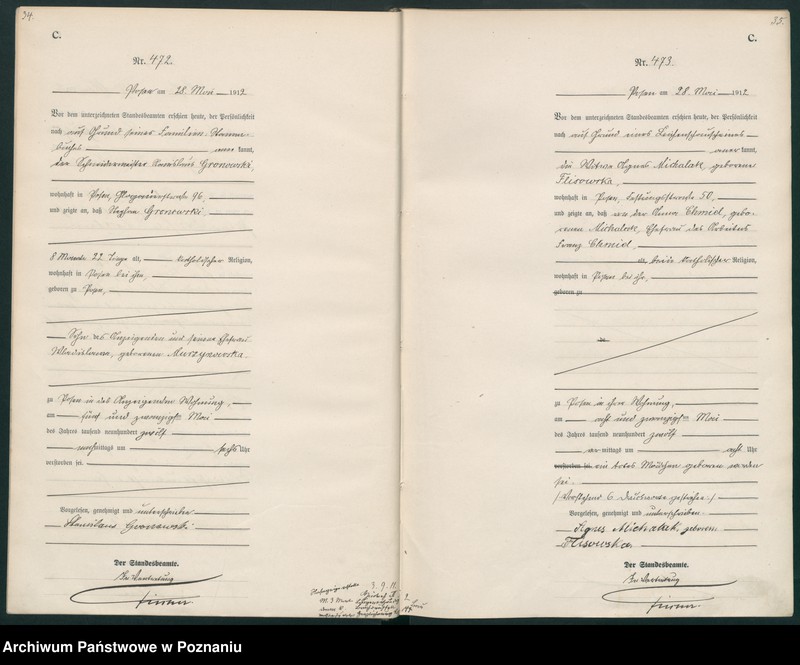 34.
C.
Nr. 472.
Posen am 28. Mai 1912
Vor dem unterzeichneten Standesbeamten erschien heute, der Persönlichkeit
nach auf Grund seines Familien-Stamm-
buches kannt,
der Schneidermeister Stanislaus Gronowski,
wohnhaft in Posen, 96,
und zeigte an, daß Gronowski
8 Monate 22 Tage alt, katholischer Religion,
wohnhaft in Posen bei ihm,
geboren zu Posen,
Sohn des Anzeigenden und seiner Ehefrau
Wladislawa, geborenen
zu Posen in des Anzeigenden Wohnung,
am fünf und zwanzigsten Mai
des Jahres tausend neunhundert zwölf
nachmittags um sechs Uhr
verstorben sei.
Vorgelesen, genehmigt und unterschrieben
Stanislaus Gronowski
Der Standesbeamte.
In Vertretung
3. 9. 11.
35.
C.
Nr. 473.
Posen am 28. Mai 1912
Vor dem unterzeichneten Standesbeamten erschien heute, der Persönlichkeit
nach auf Grund eines Leichenschauscheines
aner kannt,
die Witwe Agnes Michalak, geborene
Flisowska,
wohnhaft in Posen, 50,
und zeigte an, daß von der Anna Chmiel, gebo-
renen Michalak, Ehefrau des Arbeiters
Franz Chmiel,
alt, beide katholischer Religion,
wohnhaft in Posen bei ihr,
geboren zu
zu Posen in ihrer Wohnung,
am acht und zwanzigsten Mai
des Jahres tausend neunhundert zwölf
vor mittags um acht Uhr
verstorben sei. ein totes Mädchen geboren worden
sei.
(Vorstehend 6 Druckworte gestrichen.)
Vorgelesen, genehmigt und unterschrieben
Agnes Michalak, geborene
Flisowska
Der Standesbeamte.
In Vertretung
Archiwum Państwowe w Poznaniu